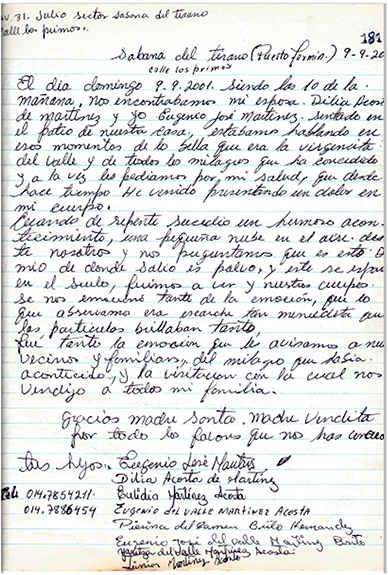 Av. 31. Julio sector sabana del tirano
calle los primos.
181
Sabana del tirano (Puerto Fermin.) 9-9-20
calle los primos
El dia domingo 9.9.2001. siendo las 10 de la
mañana, nos encontrabamos mi esposa. Dilia Acos
de martinez y yo Eugenio José Martinez. sentado en
el patio de nuestra casa, estabamos hablando en
esos momentos de lo bella que era la virgencita
del valle y de todos los milagros que ha concedido
y a la vez le pediamos por mi salud, que desde
hace tiempo He venido presentando un dolor en
mi cuerpo.
Cuando de repente sucedio un hermoso acon
tecimiento, una pequeña nube en el aire. delan
te nosotros y nos preguntamos que es esto D
mio de donde salio es polvo, y este se espar
en el suelo, fuimos a ver y nuestros cuerpos
se nos emocionó tanto de la emoción, que lo
que observamos era escarche tan menudito que
las particulas brillaban tanto,
fue tanta la emoción que les avisamos a nue
vecinos y familiares, del milagro que había
acontecido, y la visitacion con la cual nos
vendijo a todos mi familia.
Gracias madre santa. Madre vendita
por todo los favores que nos has conced
tus hijos: Eugenio José Martinez
Dilia Acosta de Martinez
014.7854211. Eulidia Martinez Acosta
014.7886454 Eugenio del Valle Martinez Acosta
Pierina del Carmen Brito Hernandez
Eugenio José del Valle Martinez Brito
del Valle Martinez Acosta
Junior Martinez Acosta